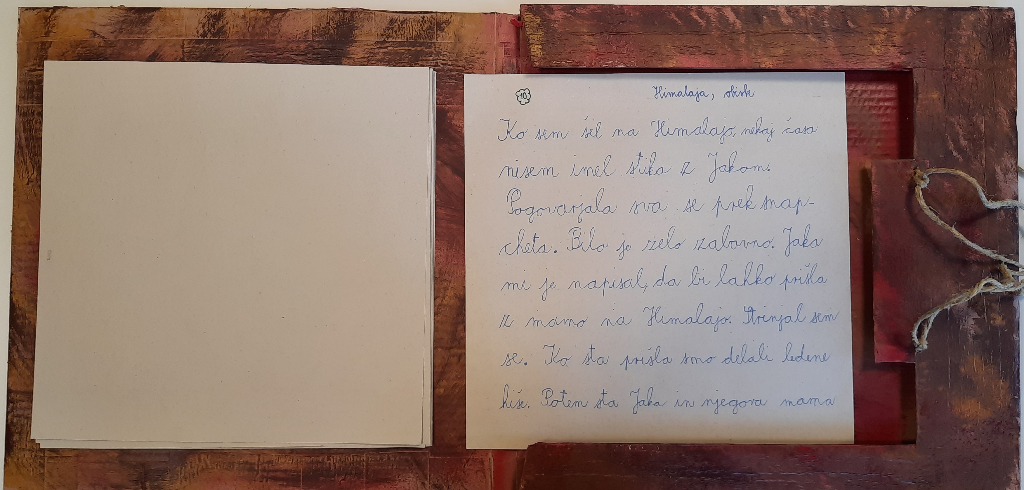 10 Himalaja, obisk
Ko sem šel na Himalajo, nekaj časa
nisem imel stika z Jakom.
Pogovarjala sva se prek snap-
cheta. Bilo je zelo zabavno. Jaka
mi je napisal, da bi lahko prišla
z mamo na Himalajo. Strinjal sem
se. Ko sta prišla smo delali ledene
hiše. Potem sta Jaka in njegova mama